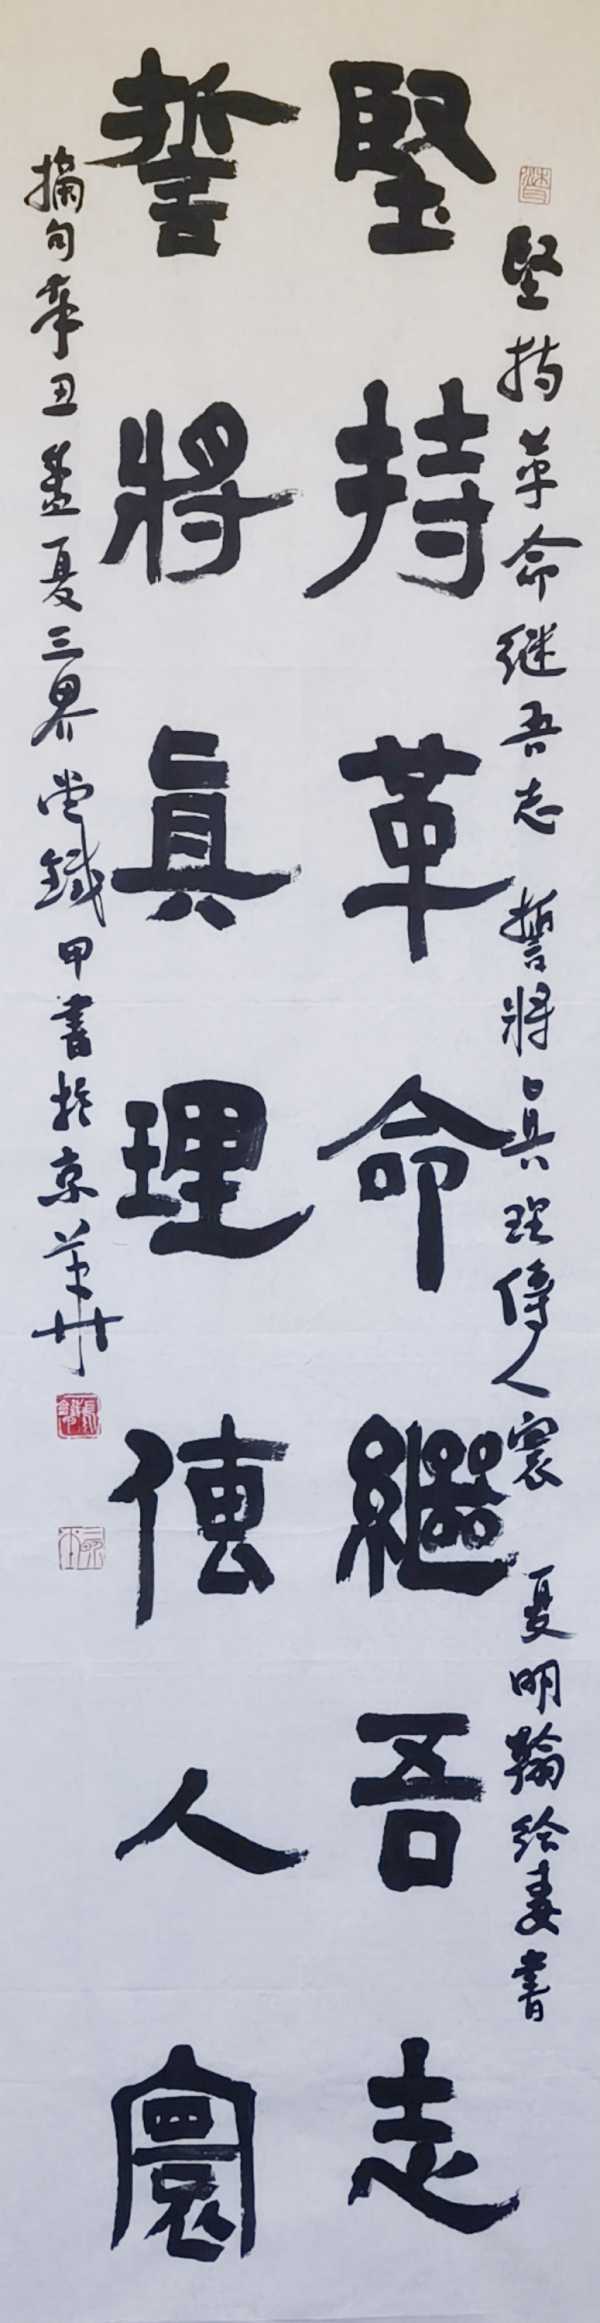 堅持革命繼吾志 誓將真理傳人寰 夏明翰给妻書
堅持革命繼吾志
誓將真理傳人寰
摘句辛丑孟夏三界堂鐵甲書於京華